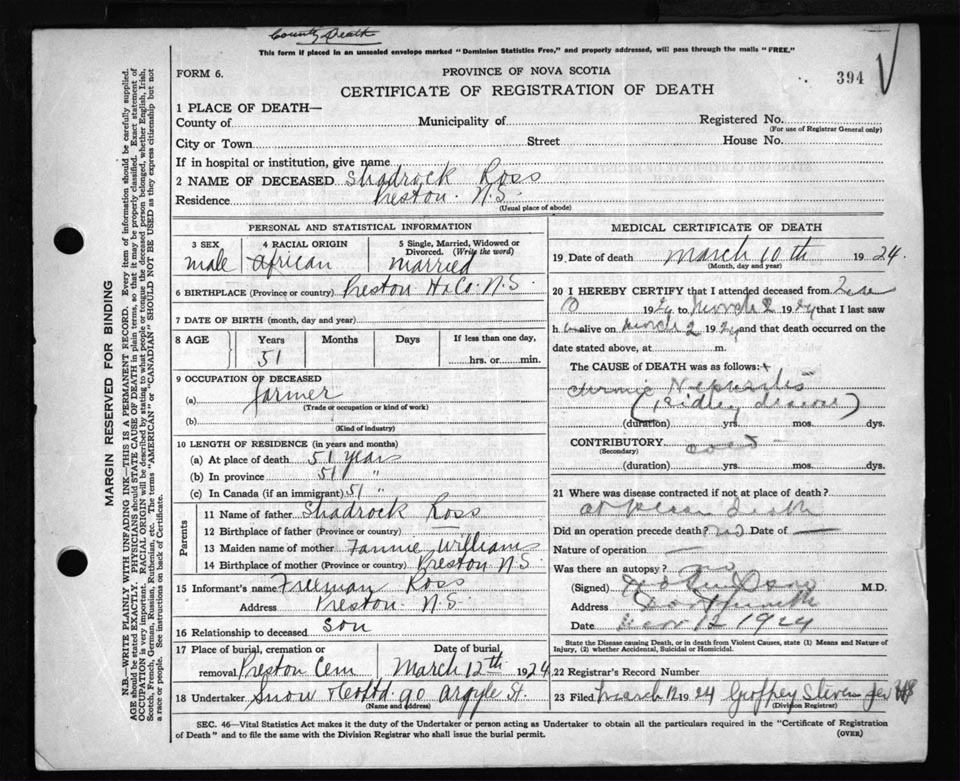 County Death
This form if placed in an unsealed envelope marked "Dominion Statistics Free," and properly addressed, will pass through the mails "FREE."
FORM 6.
PROVINCE OF NOVA SCOTIA
394
CERTIFICATE OF REGISTRATION OF DEATH
1 PLACE OF DEATH—
County of Municipality of Registered No.
(For use of Registrar General only)
City or Town Street House No.
If in hospital or institution, give name
2 NAME OF DECEASED Shadrock Ross
Residence Preston. N.S.
(Usual place of abode)
PERSONAL AND STATISTICAL INFORMATION
3 SEX 4 RACIAL ORIGIN 5 Single, Married, Widowed or
Divorced. (Write the word)
male African married
6 BIRTHPLACE (Province or country) Preston Hx Co. N.S.
7 DATE OF BIRTH (month, day and year)
8 AGE Years Months Days If less than one day,
51 hrs. or min.
9 OCCUPATION OF DECEASED
(a) farmer
(Trade or occupation or kind of work)
(b)
(Kind of industry)
10 LENGTH OF RESIDENCE (in years and months)
(a) At place of death 51 years
(b) In province 51 "
(c) In Canada (if an immigrant) 51 "
Parents
11 Name of father Shadrock Ross
12 Birthplace of father (Province or country)
13 Maiden name of mother Fannie Williams
14 Birthplace of mother (Province or country) Preston N S
15 Informant's name Freeman Ross
Address Preston. N.S.
16 Relationship to deceased son
17 Place of burial, cremation or Date of burial
removal Preston Cem March 12th 1924
18 Undertaker Snow & Co Ltd. 90 Argyle St.
(Name and address)
MEDICAL CERTIFICATE OF DEATH
19 Date of death March 10th 1924.
(Month, day and year)
20 I HEREBY CERTIFY that I attended deceased from
19 24 to March 2 1924 that I last saw
h im alive on March 2 1924 and that death occurred on the
date stated above, at m.
The CAUSE OF DEATH was as follows:
Chronic Nephritis
(Kidney disease)
(duration) yrs. mos. dys.
CONTRIBUTORY
(Secondary)
(duration) yrs. mos. dys.
21 Where was disease contracted if not at place of death?
at place death
Did an operation precede death? no Date of —
Nature of operation —
Was there an autopsy? no
(Signed) M.D.
Address Dartmouth
Date 12 1924
State the Disease causing Death, or in death from Violent Causes, state (1) Means and Nature of
Injury, (2) whether Accidental, Suicidal or Homicidal.
22 Registrar's Record Number
23 Filed March 12 1924 Geoffrey Stevens
(Division Registrar)
SEC. 46—Vital Statistics Act makes it the duty of the Undertaker or person acting as Undertaker to obtain all the particulars required in the "Certificate of Registration
of Death" and to file the same with the Division Registrar who shall issue the burial permit.
(OVER)
MARGIN RESERVED FOR BINDING
N.B.—WRITE PLAINLY WITH UNFADING INK—THIS IS A PERMANENT RECORD. Every item of information should be carefully supplied.
AGE should be stated EXACTLY. PHYSICIANS should STATE CAUSE OF DEATH in plain terms, so that it may be properly classified. Exact statement of
OCCUPATION is very important. RACIAL ORIGIN will be described by stating to what people or tongue the deceased person belonged, whether English, Irish,
Scotch, French, German, Russian, Ruthenian, etc. The terms "AMERICAN" or "CANADIAN" SHOULD NOT BE USED as they express citizenship but not
a race or people. See instructions on back of Certificate.